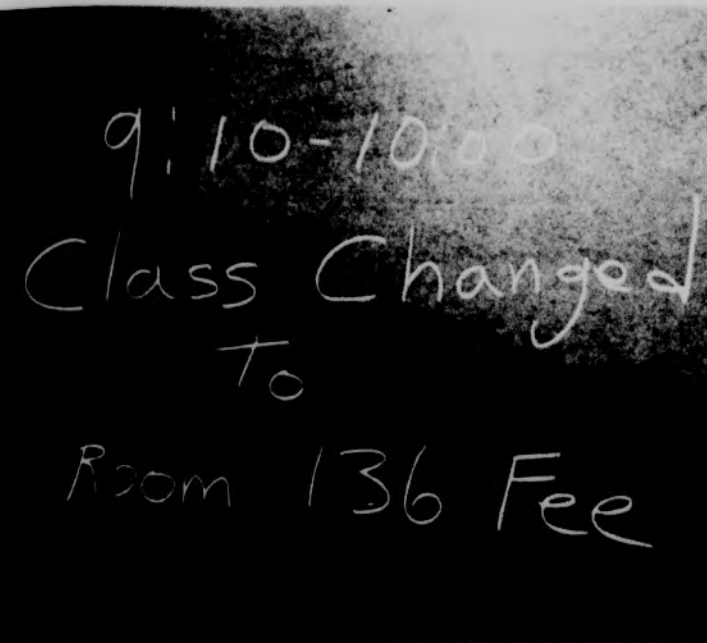 9:10-10:00
Class Changed
To
Room 136 Fee